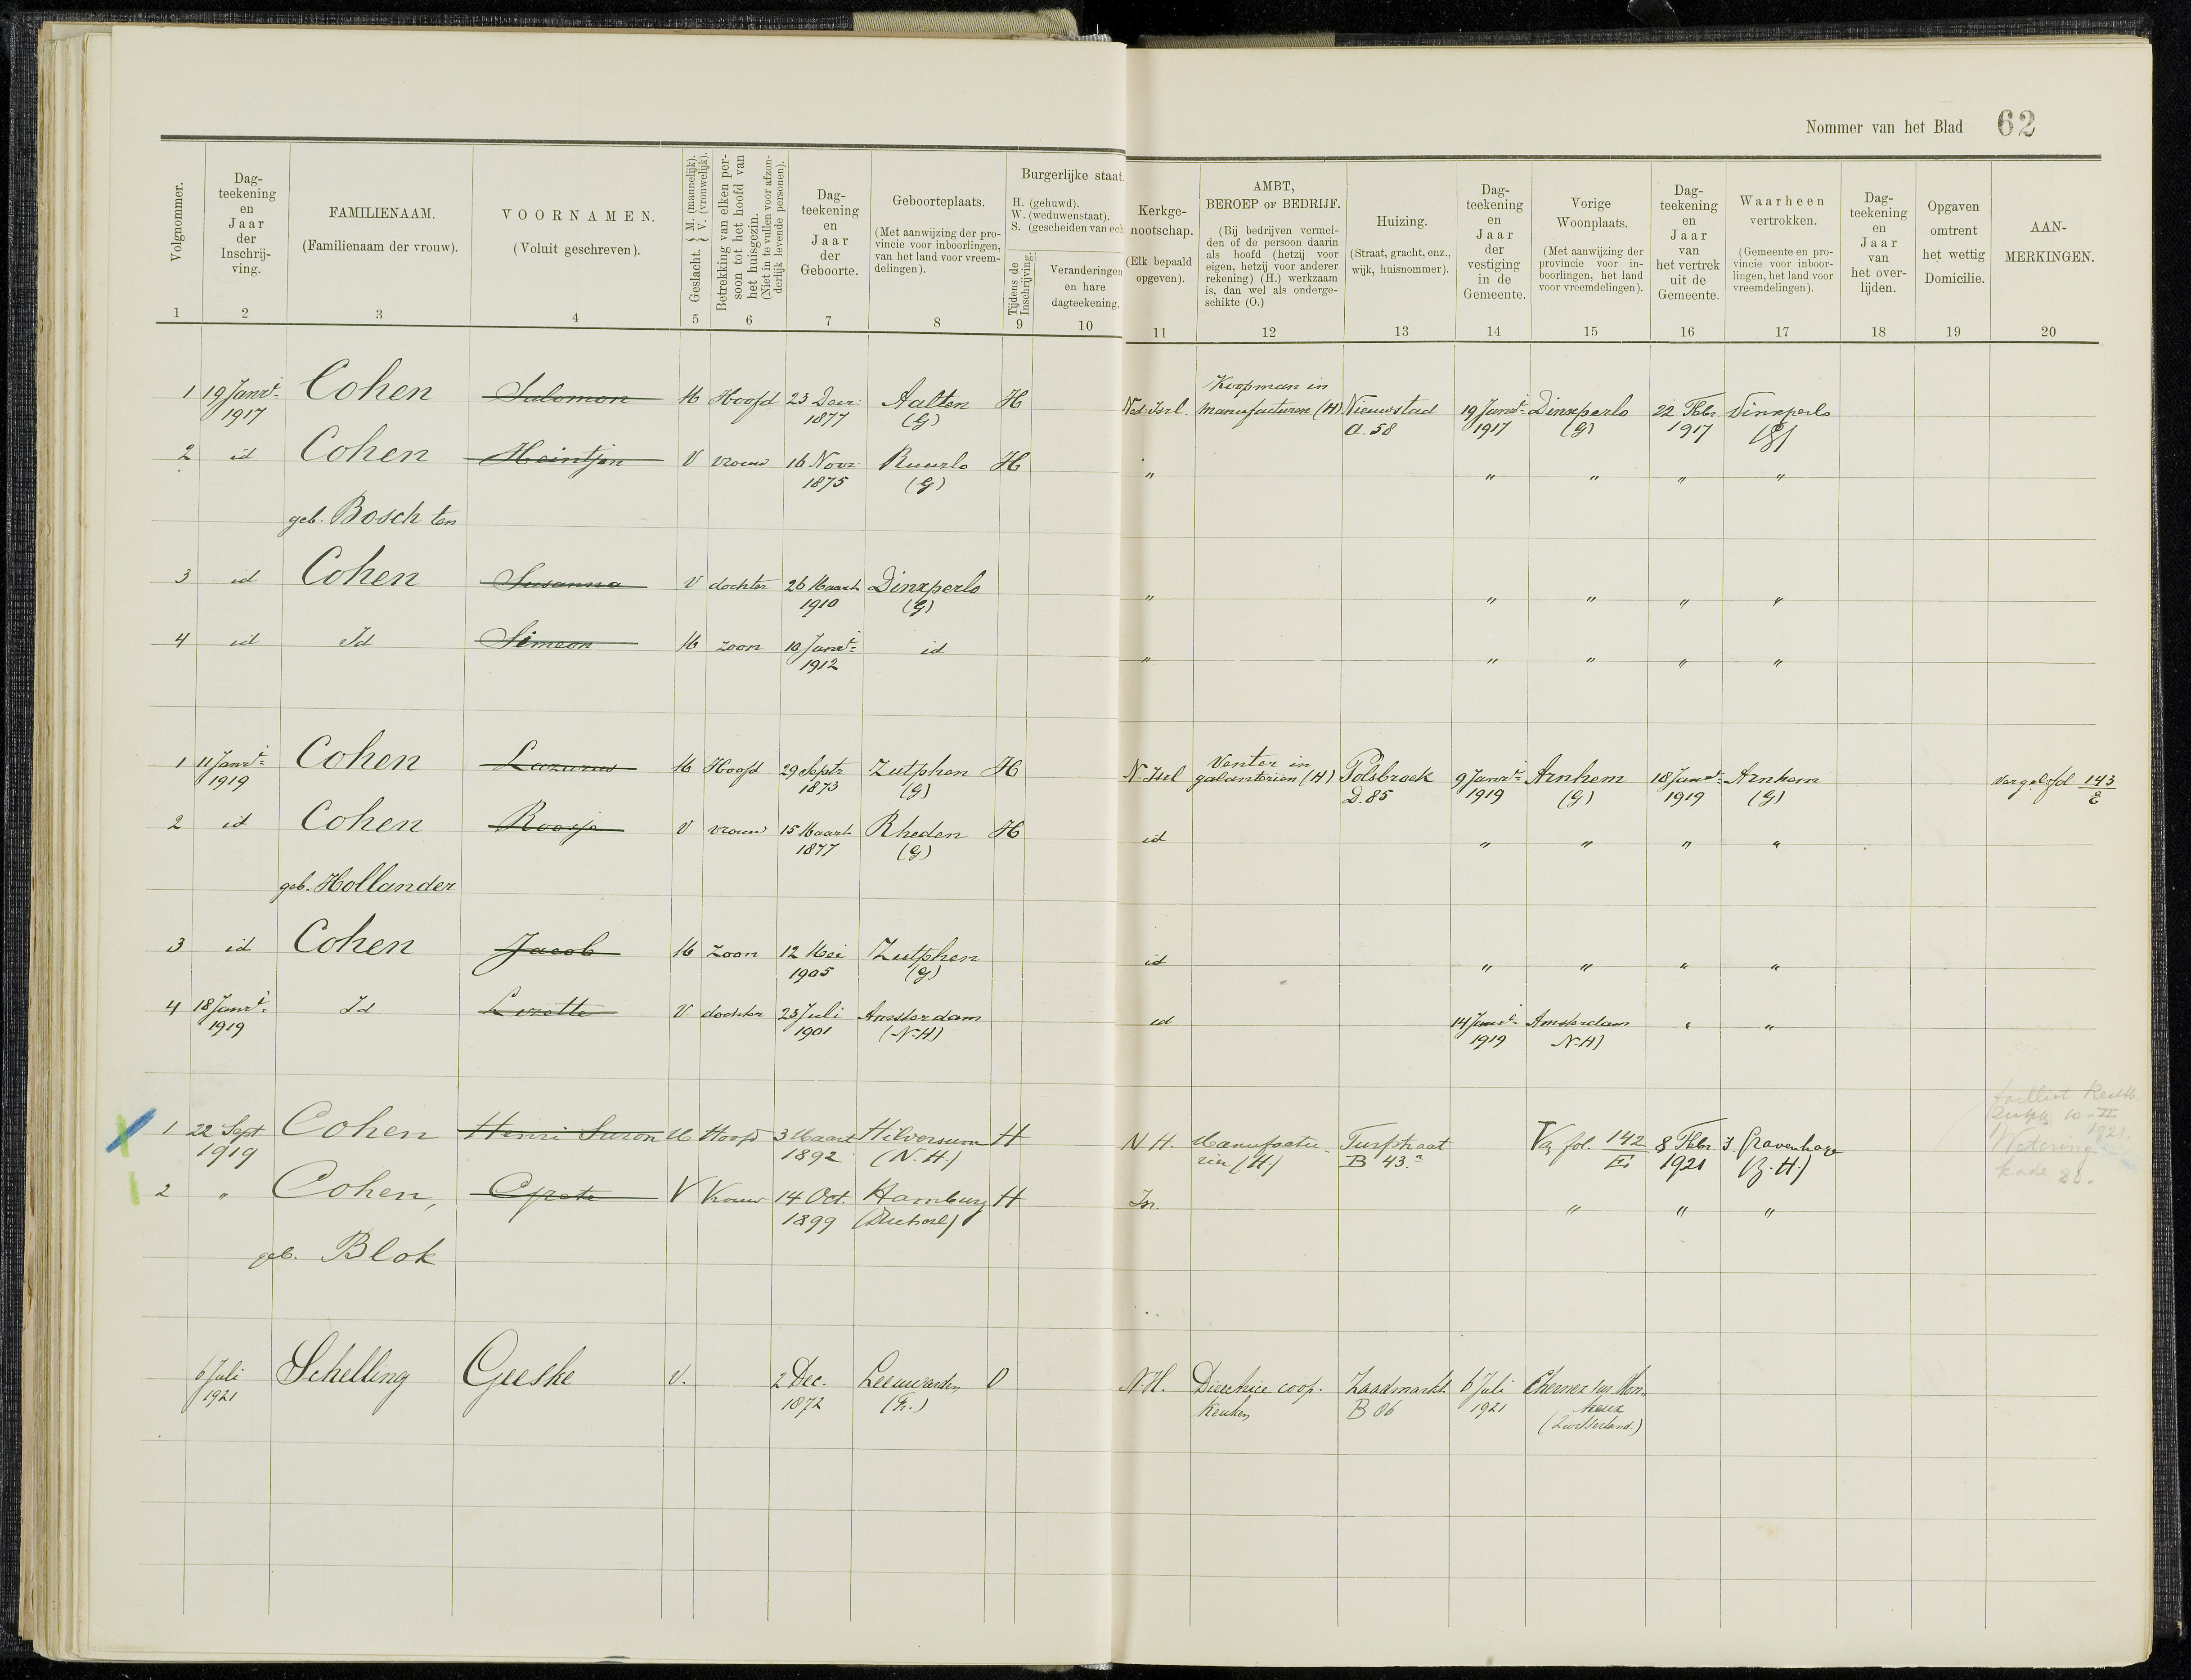 Nommer van het Blad 62
Volgnommer.
Dag-
teekening
en
Jaar
der
Inschrij-
ving.
FAMILIENAAM.
(Familienaam der vrouw).
VOORNAMEN.
(Voluit geschreven).
Geslacht. { M. (mannelijk). V. (vrouwelijk).
Betrekking van elken per-
soon tot het hoofd van
het huisgezin.
(Niet in te vullen voor afzon-
derlijk levende personen).
Dag-
teekening
en
Jaar
der
Geboorte.
Geboorteplaats.
(Met aanwijzing der pro-
vincie voor inboorlingen,
van het land voor vreem-
delingen).
Burgerlijke staat.
H. (gehuwd).
W. (weduwenstaat).
S. (gescheiden van ech
Tijdens de
Inschrijving.
Veranderingen
en hare
dagteekening.
Kerkge-
nootschap.
(Elk bepaald
opgeven).
AMBT,
BEROEP OF BEDRIJF.
(Bij bedrijven vermel-
den of de persoon daarin
als hoofd (hetzij voor
eigen, hetzij voor anderer
rekening) (H.) werkzaam
is, dan wel als onderge-
schikte (O.)
Huizing.
(Straat, gracht, enz.,
wijk, huisnommer).
Dag-
teekening
en
Jaar
der
vestiging
in de
Gemeente.
Vorige
Woonplaats.
(Met aanwijzing der
provincie voor in-
boorlingen, het land
voor vreemdelingen).
Dag-
teekening
en
Jaar
van
het vertrek
uit de
Gemeente.
Waarheen
vertrokken.
(Gemeente en pro-
vincie voor inboor-
lingen, het land voor
vreemdelingen).
Dag-
teekening
en
Jaar
van
het over-
lijden.
Opgaven
omtrent
het wettig
Domicilie.
AAN-
MERKINGEN.
1 2 3 4 5 6 7 8 9 10 11 12 13 14 15 16 17 18 19 20
Koopman in
1 19 Janri Cohen Salomon M Hoofd 23 Decr Aalten H Ned. Isrl. manufacturen (H) Nieuwstad 19 Janri Dinxperlo 22 Febr. Dinxperlo
1917 1877 (G) A. 58 1917 (G) 1917 (G)
2 id Cohen Heintjen V vrouw 16 Novr. Ruurlo H " " " " "
1875 (G)
geb. Bosch ten
3 id Cohen Susanna V dochter 26 Maart Dinxperlo " " " " "
1910 (G)
4 id Id Simeon M zoon 10 Janri id " " " " "
1912
Venter in
1 11 Janri Cohen Lazarus M Hoofd 29 Septr Zutphen H N. Isrl galanteriën (H) Polsbroek 9 Janri Arnhem 18 Janri Arnhem Vergel. fol 143
1919 1873 (G) D. 85 1919 (G) 1919 (G) E
2 id Cohen Roosje V vrouw 15 Maart Rheden H id " " " "
1877 (G)
geb. Hollander
3 id Cohen Jacob M zoon 12 Mei Zutphen id " " " "
1905 (G)
4 18 Janri Id Lizette V dochter 23 Juli Amsterdam id 14 Janri Amsterdam " "
1919 1901 (N-H) 1919 N-H)
failliet
10-II
1921
Wetering
kade
1 22 Sept Cohen Henri Suron M Hoofd 3 Maart Hilversum H N H. Manufactu- Turfstraat Van fol. 142 8 Febr. 's Gravenhage
1919 1892 (N.H.) riën (H.) B 43.a EI 1921 (Z.H.)
2 " Cohen, Greta V Vrouw 14 Oct. Hamburg H Isr. " " "
1899
geb. Blok
6 Juli Schelling Geeske V. 2 Dec. Leeuwarden O N.H. Directrice coop. Zaadmarkt 6 Juli Chernex sur Mon-
1921 1872 (Fr.) keuken B 86 1921 treux
(Zwitserland.)